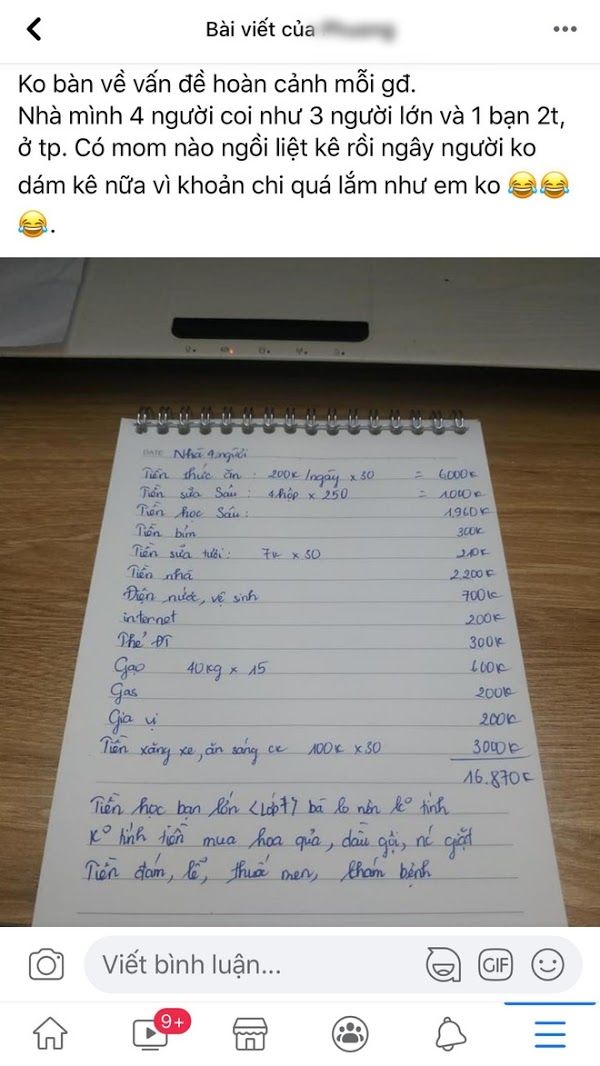 Bài viết của
Ko bàn về vấn đề hoàn cảnh mỗi gđ.
Nhà mình 4 người coi như 3 người lớn và 1 bạn 2t,
ở tp. Có mom nào ngồi liệt kê rồi ngây người ko
dám kê nữa vì khoản chi quá lắm như em ko 😂😂
😂.
DATE Nhà 4 người
Tiền thức ăn : 200k/ngày x 30 = 6.000k
Tiền sữa Sáu : 4 hộp x 250 = 1.000k
Tiền học Sáu : 1.960k
Tiền bỉm 300k
Tiền sữa tươi : 7k x 30 210k
Tiền nhà 2.200k
Điện nước, vệ sinh 700k
internet 200k
Thẻ ĐT 300k
Gạo 40kg x 15 600k
Gas 200k
Gia vị 200k
Tiền xăng xe, ăn sáng ck 100k x 30 3000k
16.870k
Tiền học bạn lớn <Lớp 7> bà lo nên k° tính
K° tính tiền mua hoa quả, dầu gội, nc giặt
Tiền đám, lễ, thuốc men, khám bệnh
Viết bình luận...
GIF
9+